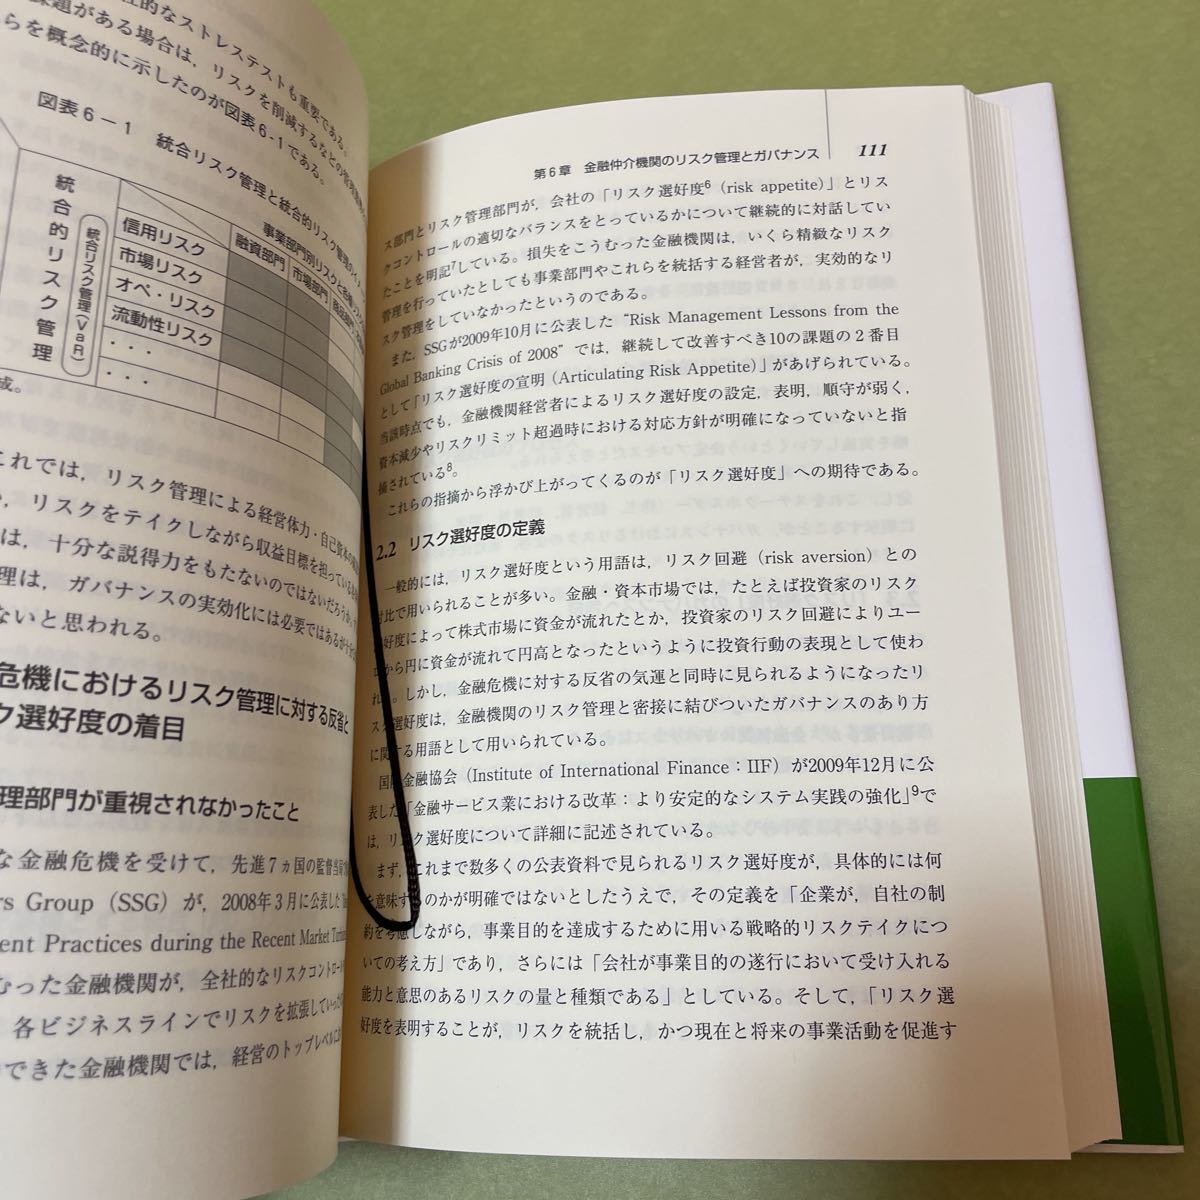 社的なストレステストも重要である。
課題がある場合は，リスクを削減するなどの
らを概念的に示したのが図表6-1である。
図表6－1 統合リスク管理と統合的リスク管理のイメ
統合的リスク管理
統合リスク管理（VaR）
事業部門別リスクと
融資部門
市場部門
信用リスク
市場リスク
オペ・リスク
流動性リスク
・・・
・・・
成。
これでは，リスク管理による経営体力・自己資本の
，リスクをテイクしながら収益目標を担っている
は，十分な説得力をもたないのではないだろうか。
理は，ガバナンスの実効化には必要ではあるが十分
ないと思われる。
危機におけるリスク管理に対する反省と
ク選好度の着目
理部門が重視されなかったこと
な金融危機を受けて，先進7ヵ国の監督当局
rs Group（SSG）が，2008年3月に公表した
ent Practices during the Recent Market
むった金融機関が，全社的なリスクコントロール
，各ビジネスラインでリスクを拡張していった
できた金融機関では，経営のトップレベルに
第6章 金融仲介機関のリスク管理とガバナンス 111
ス部門とリスク管理部門が，会社の「リスク選好度6（risk appetite）」とリス
クコントロールの適切なバランスをとっているかについて継続的に対話してい
たことを明記7している。損失をこうむった金融機関は，いくら精緻なリスク
管理を行っていたとしても事業部門やこれらを統括する経営者が，実効的なリ
スク管理をしていなかったというのである。
また，SSGが2009年10月に公表した“Risk Management Lessons from the
Global Banking Crisis of 2008”では，継続して改善すべき10の課題の2番目
として「リスク選好度の宣明（Articulating Risk Appetite）」があげられている。
当該時点でも，金融機関経営者によるリスク選好度の設定，表明，順守が弱く，
資本減少やリスクリミット超過時における対応方針が明確になっていないと指
摘されている8。
これらの指摘から浮かび上がってくるのが「リスク選好度」への期待である。
2.2 リスク選好度の定義
一般的には，リスク選好度という用語は，リスク回避（risk aversion）との
対比で用いられることが多い。金融・資本市場では，たとえば投資家のリスク
選好度によって株式市場に資金が流れたとか，投資家のリスク回避によりユー
ロから円に資金が流れて円高となったというように投資行動の表現として使わ
れる。しかし，金融危機に対する反省の気運と同時に見られるようになったリ
スク選好度は，金融機関のリスク管理と密接に結びついたガバナンスのあり方
に関する用語として用いられている。
国際金融協会（Institute of International Finance：IIF）が2009年12月に公
表した「金融サービス業における改革：より安定的なシステム実践の強化」9で
は，リスク選好度について詳細に記述されている。
まず，これまで数多くの公表資料で見られるリスク選好度が，具体的には何
を意味するのかが明確ではないとしたうえで，その定義を「企業が，自社の制
約を考慮しながら，事業目的を達成するために用いる戦略的リスクテイクにつ
いての考え方」であり，さらには「会社が事業目的の遂行において受け入れる
能力と意思のあるリスクの量と種類である」としている。そして，「リスク選
好度を表明することが，リスクを統括し，かつ現在と将来の事業活動を促進す